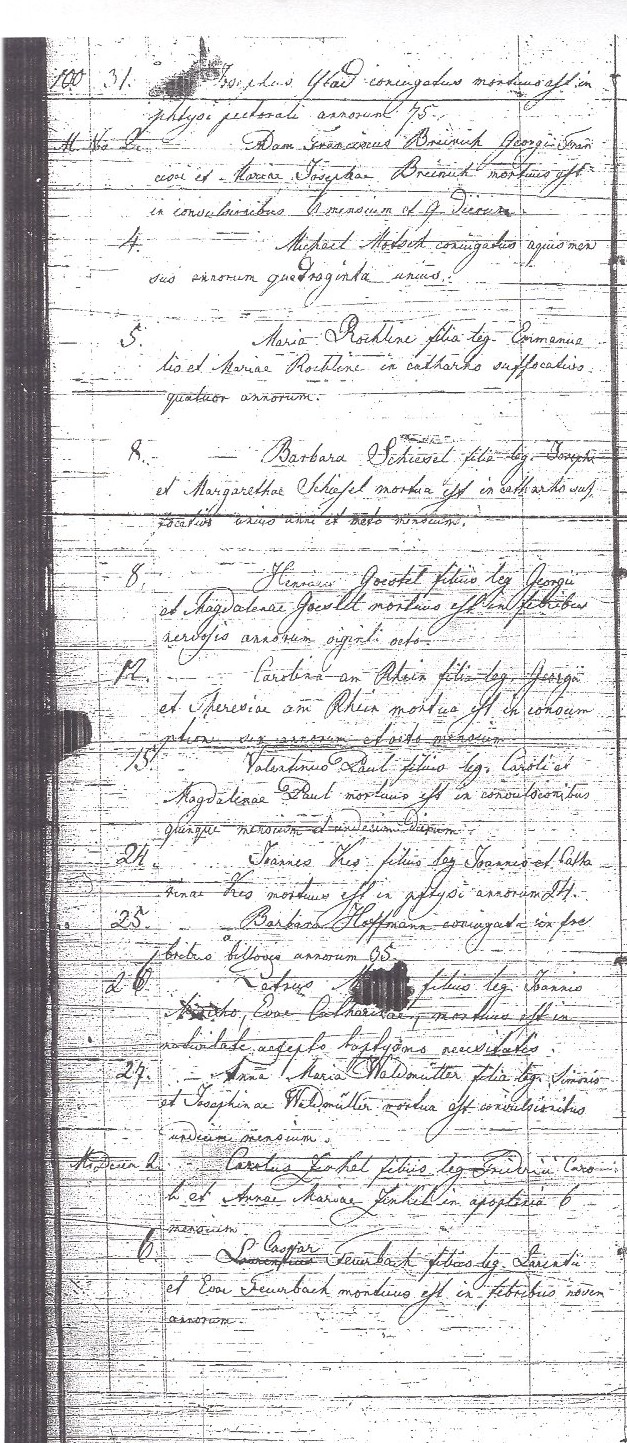 100 31. Josephus conjugatus mortuus est in
phtysi pectorali annorum 75.
M. No 2. Adam Franciscus Breinich Georgii Fran
cisci et Mariae Josephae Breinich mortuus est
in convulsionibus mensium et 9 dierum
4. Michael Motsch conjugatus aquis mer
sus annorum quadraginta unius.
5. Maria Rochline filia leg. Emmanue
lis et Mariae Rochline in catharro suffocativo
quatuor annorum.
8. Barbara Schiesel filia leg. Joseph.
et Margarethae Schiesel mortua est in catharrho suf,
focativo unius anni et octo mensium.
8. Henricus Goestel filius leg Georgii
et Magdalenae Goestel mortuus est in febribus
nervosis annorum viginti octo
12. Carolina am Rhein filia leg. Georgii
et Theresiae am Rhein mortua est in consum
ptione sex annorum et octo mensium
15. Valentinus Paul filius leg. Caroli et
Magdalenae Paul mortuus est in convulsionibus
quinque mensium et undecim dierum
24. Joannes Kres filius leg Joannis et Catha
rinae Kres mortuus est in phtysi annorum 24.
25. Barbara Hoffmann conjugata in fe
bribus biliosis annorum 35.
26. Petrus filius leg. Joannis
Evae Catharinae, mortuus est in
nativitate accepto baptysmo necessitatis.
27. Anna Maria Waldmütter filia leg. Simonis
et Josephinae Waldmütter mortua est convulsionibus
undecim mensium.
M. Decem 2. Carolus Jinkel filius leg Fridrici Caro
li et Annae Mariae Jinkel in apoplexia 6
mensium
6. Caspar
Laurentius Feuerbach filius leg. Larentii
et Evae Feuerbach mortuus est in febribus novem
annorum.